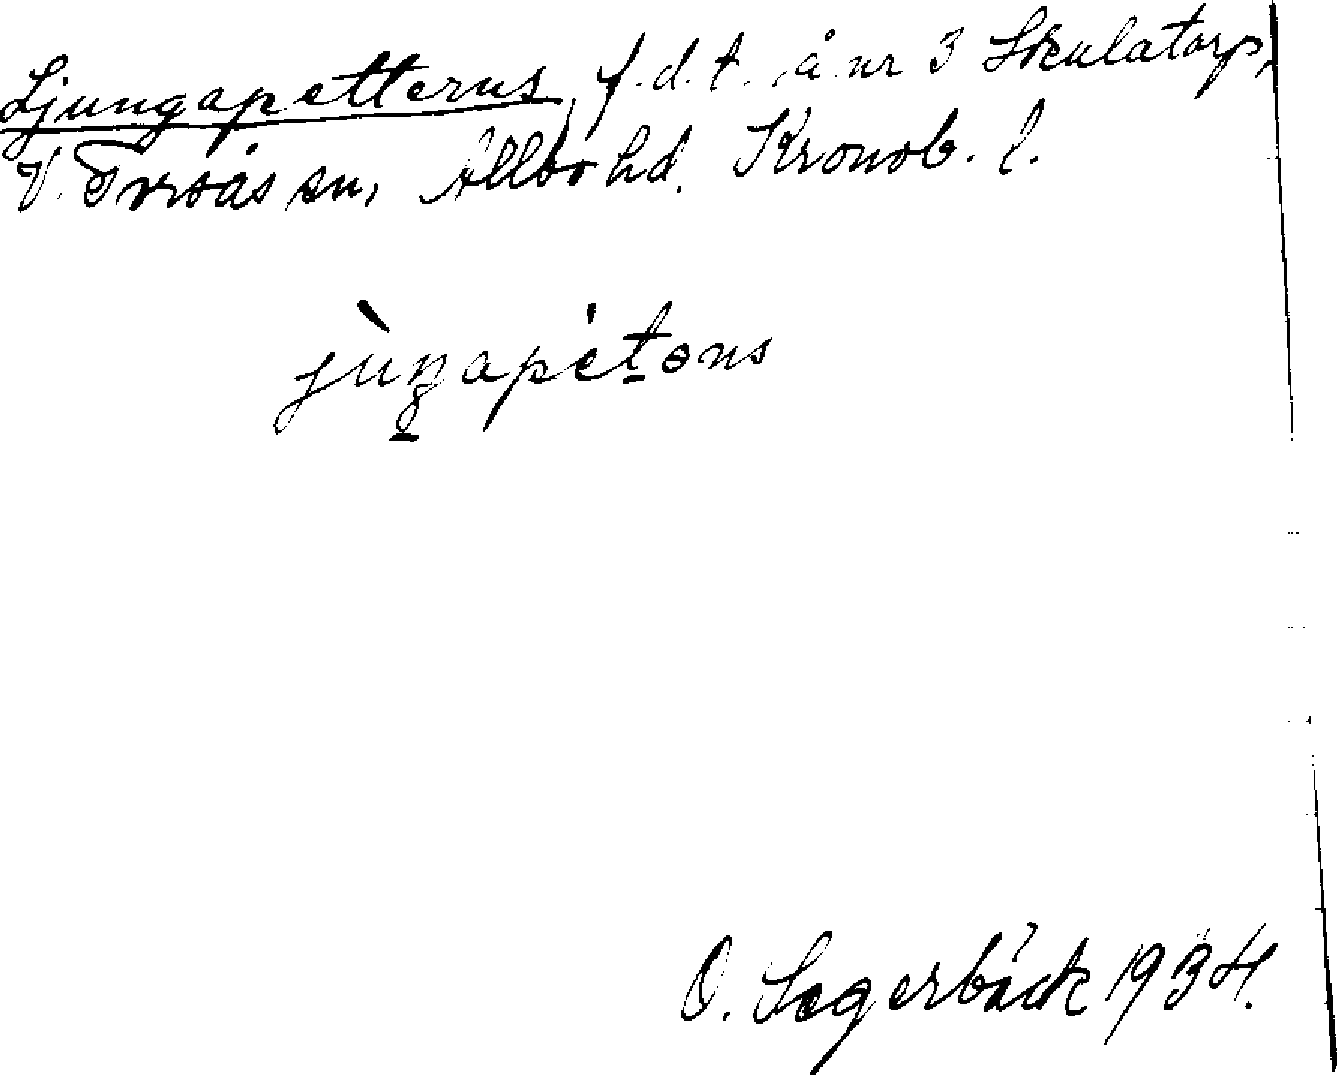 Ljungapetterus, f.d.t. å nr 3 Skulatorp,
V. Torsås sn, Allbo hd. Kronob. l.
jùŋapétəns
O. Segerbäck 1934.